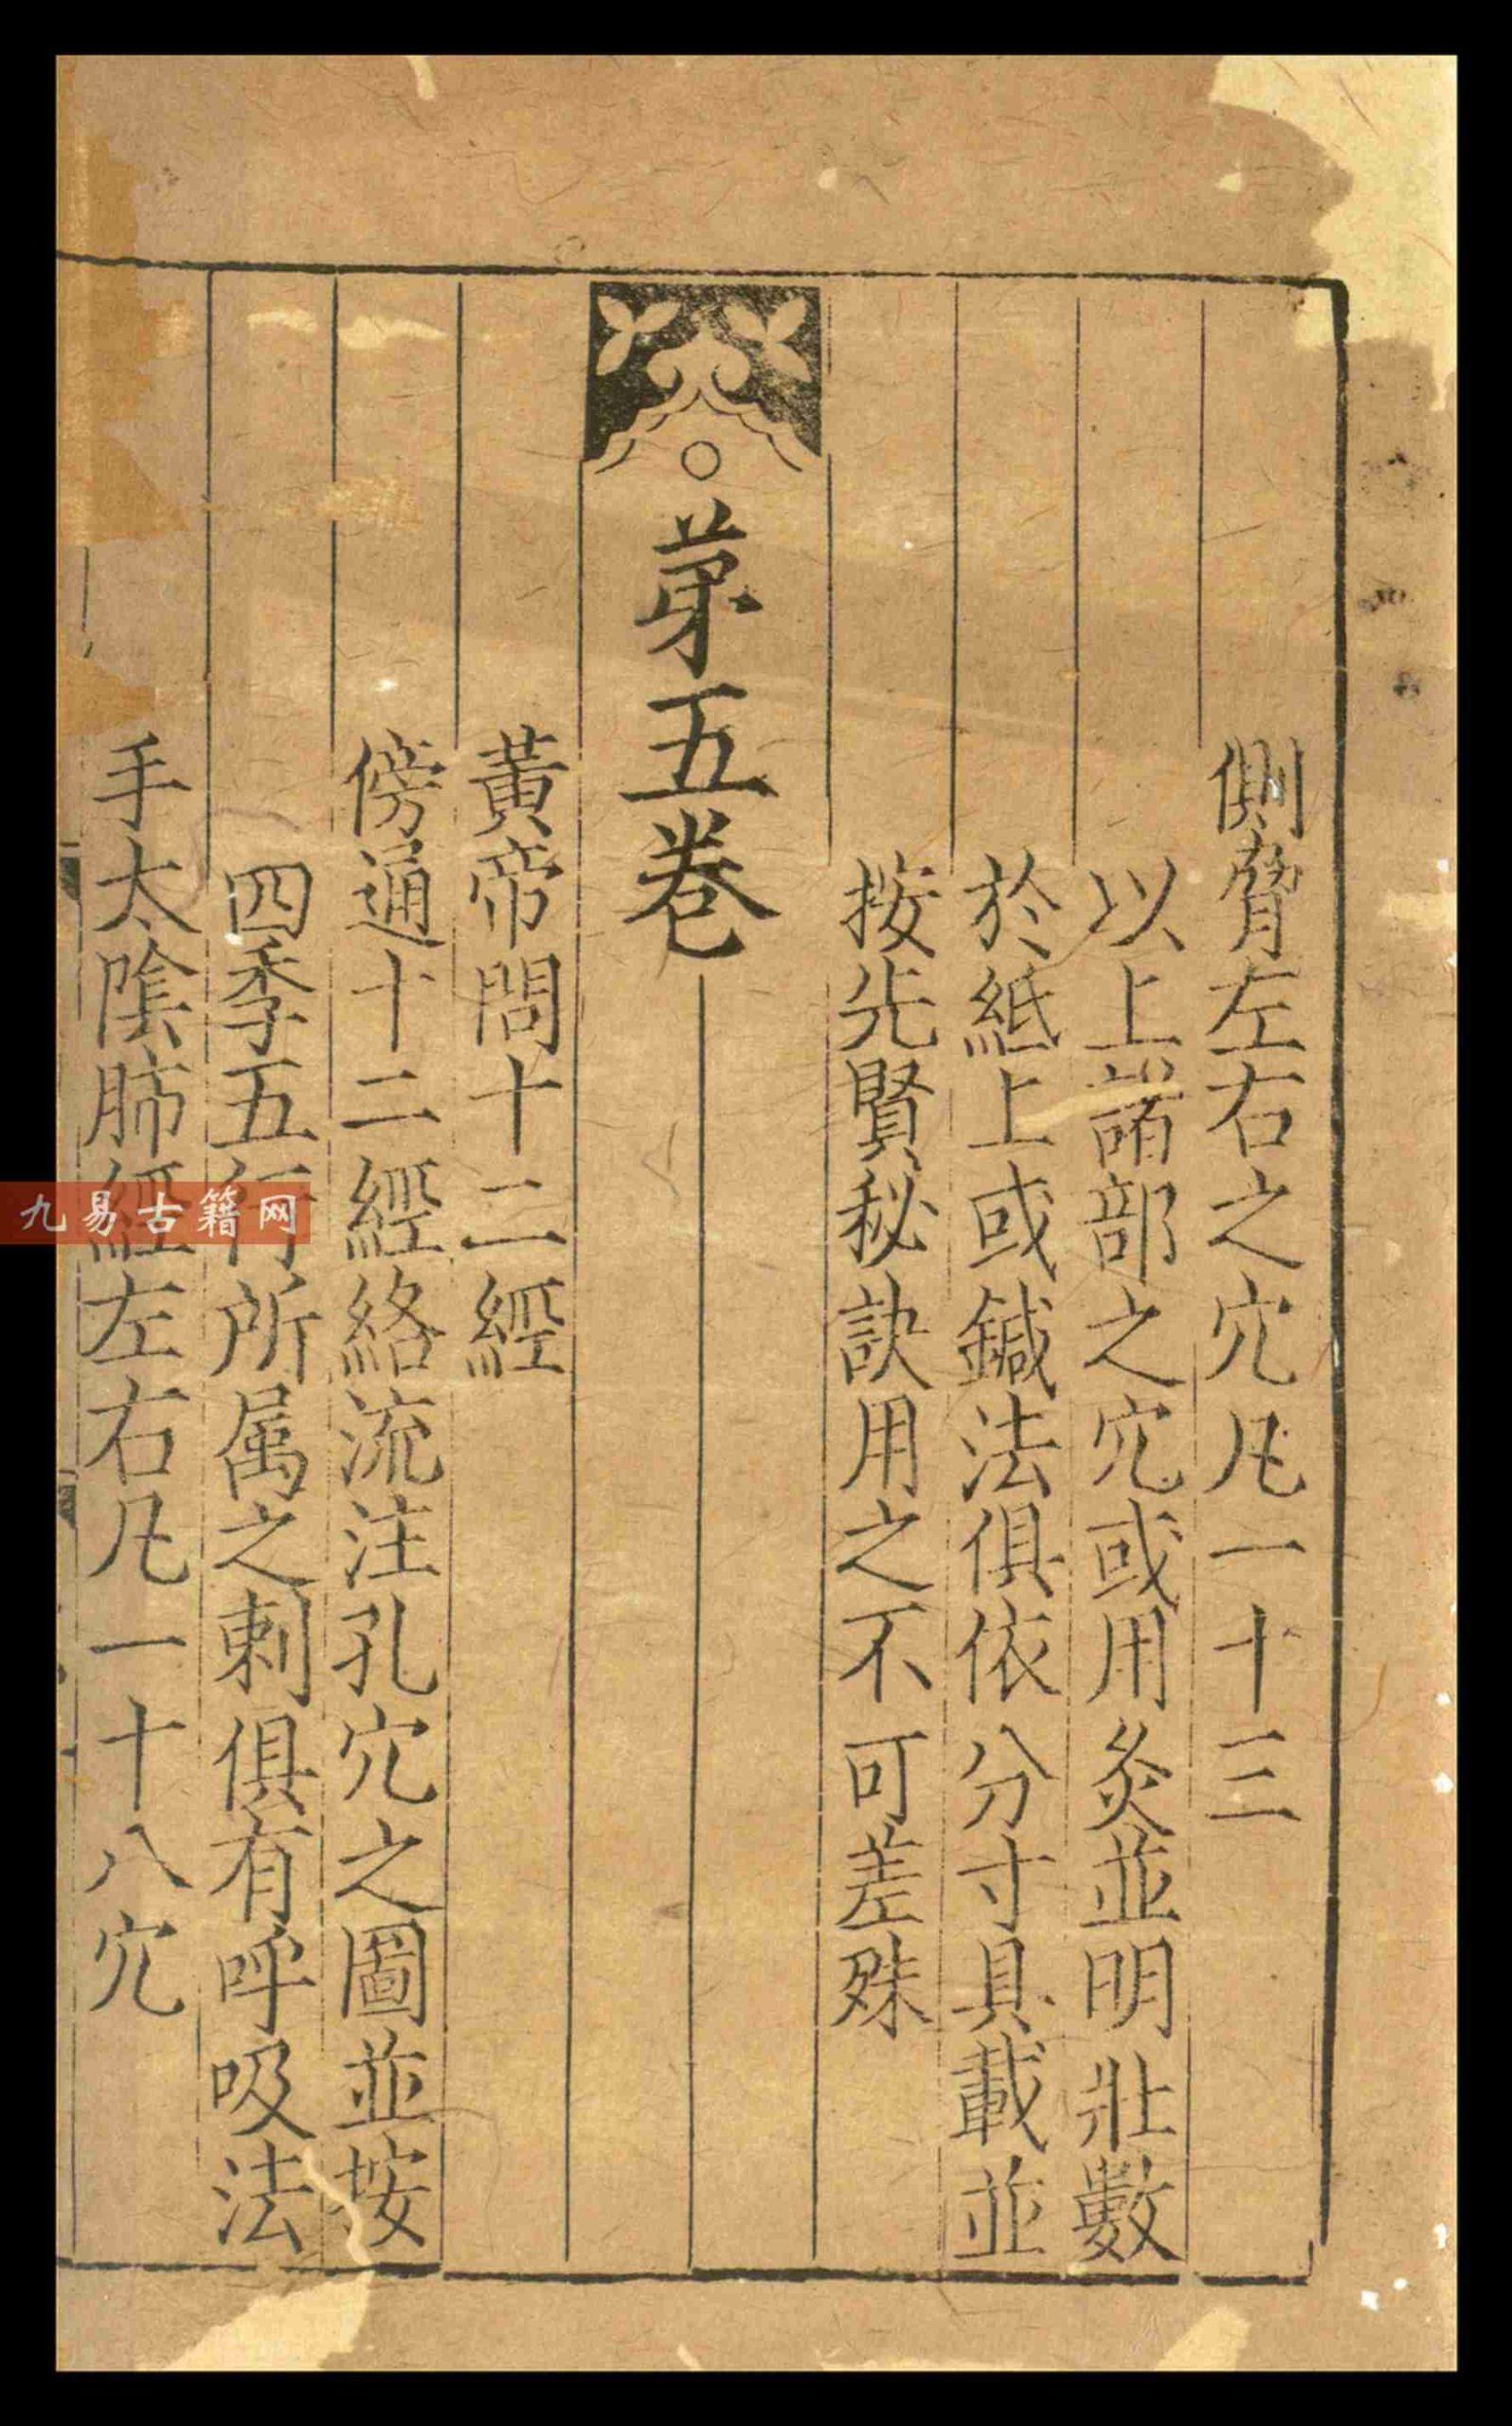 側脅左右之穴凡一十三
以上諸部之穴或用灸並明壯數
於紙上或鍼法俱依分寸具載並
按先賢秘訣用之不可差殊
○第五卷
黃帝問十二經
傍通十二經絡流注孔穴之圖並按
四季五行所屬之刺俱有呼吸法
手太陰肺經左右凡一十八穴
九易古籍网